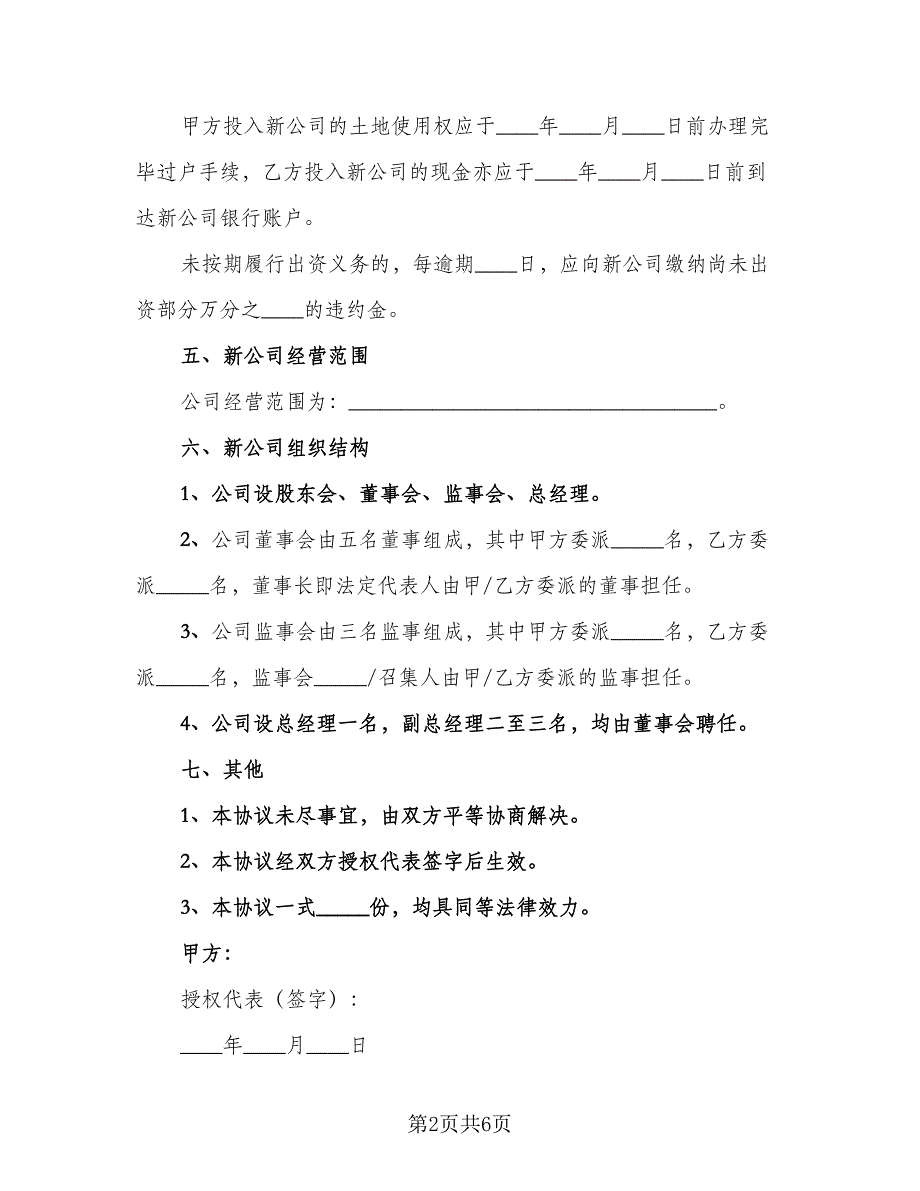 甲方投入新公司的土地使用权应于____年____月____日前办理完
毕过户手续，乙方投入新公司的现金亦应于____年____月____日前到
达新公司银行账户。
未按期履行出资义务的，每逾期____日，应向新公司缴纳尚未出
资部分万分之____的违约金。
五、新公司经营范围
公司经营范围为：___________________________________。
六、新公司组织结构
1、公司设股东会、董事会、监事会、总经理。
2、公司董事会由五名董事组成，其中甲方委派_____名，乙方委
派_____名，董事长即法定代表人由甲/乙方委派的董事担任。
3、公司监事会由三名监事组成，其中甲方委派_____名，乙方委
派_____名，监事会_____/召集人由甲/乙方委派的监事担任。
4、公司设总经理一名，副总经理二至三名，均由董事会聘任。
七、其他
1、本协议未尽事宜，由双方平等协商解决。
2、本协议经双方授权代表签字后生效。
3、本协议一式_____份，均具同等法律效力。
甲方：
授权代表（签字）：
____年____月____日
第2页共6页